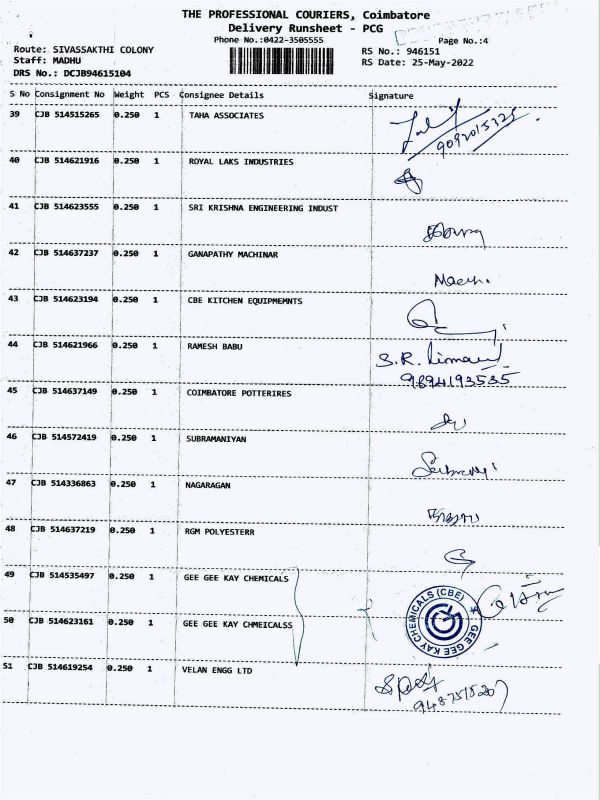 THE PROFESSIONAL COURIERS, Coimbatore
Delivery Runsheet - PCG
Phone No.:0422-3505555
Page No.:4
Route: SIVASSAKTHI COLONY
RS No.: 946151
Staff: MADHU
RS Date: 25-May-2022
DRS No.: DCJB94615104
S No Consignment No Weight PCS Consignee Details Signature
39 CJB 514515265 0.250 1 TAHA ASSOCIATES
40 CJB 514621916 0.250 1 ROYAL LAKS INDUSTRIES
41 CJB 514623555 0.250 1 SRI KRISHNA ENGINEERING INDUST
42 CJB 514637237 0.250 1 GANAPATHY MACHINAR
43 CJB 514623194 0.250 1 CBE KITCHEN EQUIPMEMNTS
44 CJB 514621966 0.250 1 RAMESH BABU
S.R.
9894193535
45 CJB 514637149 0.250 1 COIMBATORE POTTERIRES
46 CJB 514572419 0.250 1 SUBRAMANIYAN
47 CJB 514336863 0.250 1 NAGARAGAN
48 CJB 514637219 0.250 1 RGM POLYESTERR
49 CJB 514535497 0.250 1 GEE GEE KAY CHEMICALS
50 CJB 514623161 0.250 1 GEE GEE KAY CHMEICALSS
GEE GEE KAY CHEMICALS (CBE)
51 CJB 514619254 0.250 1 VELAN ENGG LTD